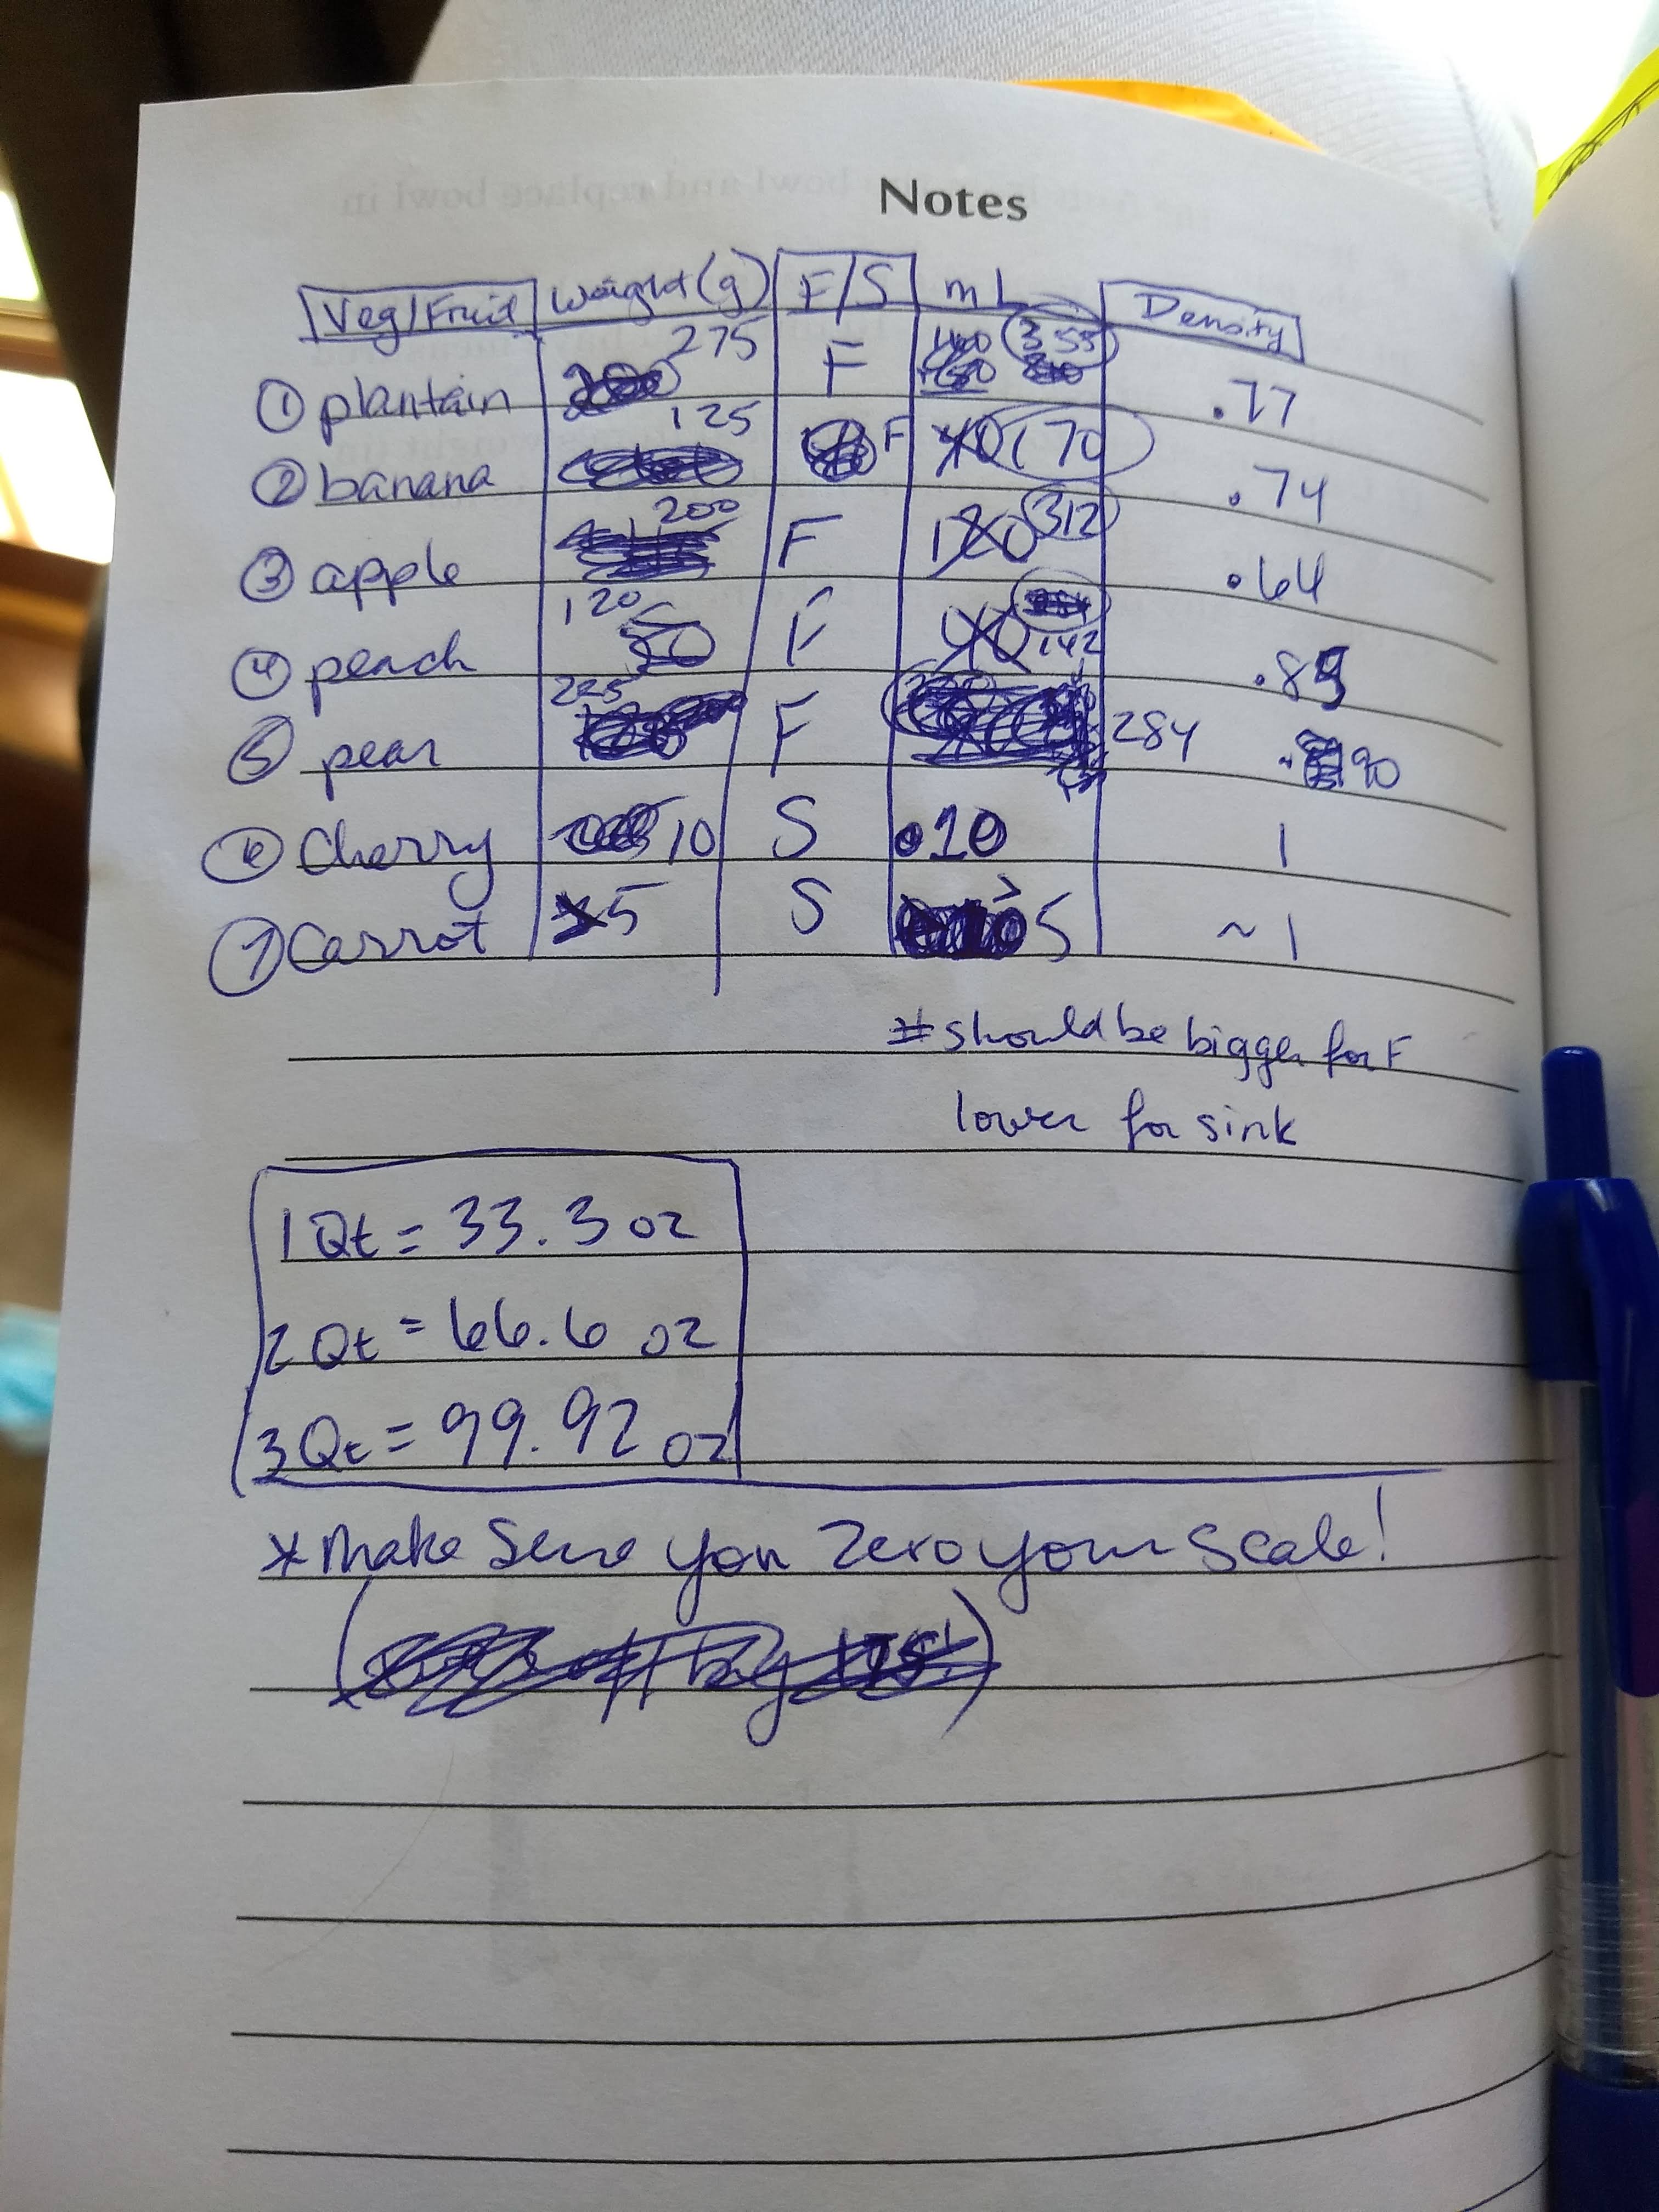 Notes
Veg/Fruit Weight(g) F/S mL Density
① plantain 275 F 355 .77
② banana 125 F 170 .74
③ apple 200 F 180 312 .64
④ peach 120 50 F 40 142 .85
⑤ pear 225 F 284 .90
⑥ Cherry 10 S 10 1
⑦ Carrot 5 S >5 ~1
# should be bigger for F
lower for sink
1 Qt = 33.3 oz
2 Qt = 66.6 oz
3 Qt = 99.92 oz
* Make sure you zero your scale!